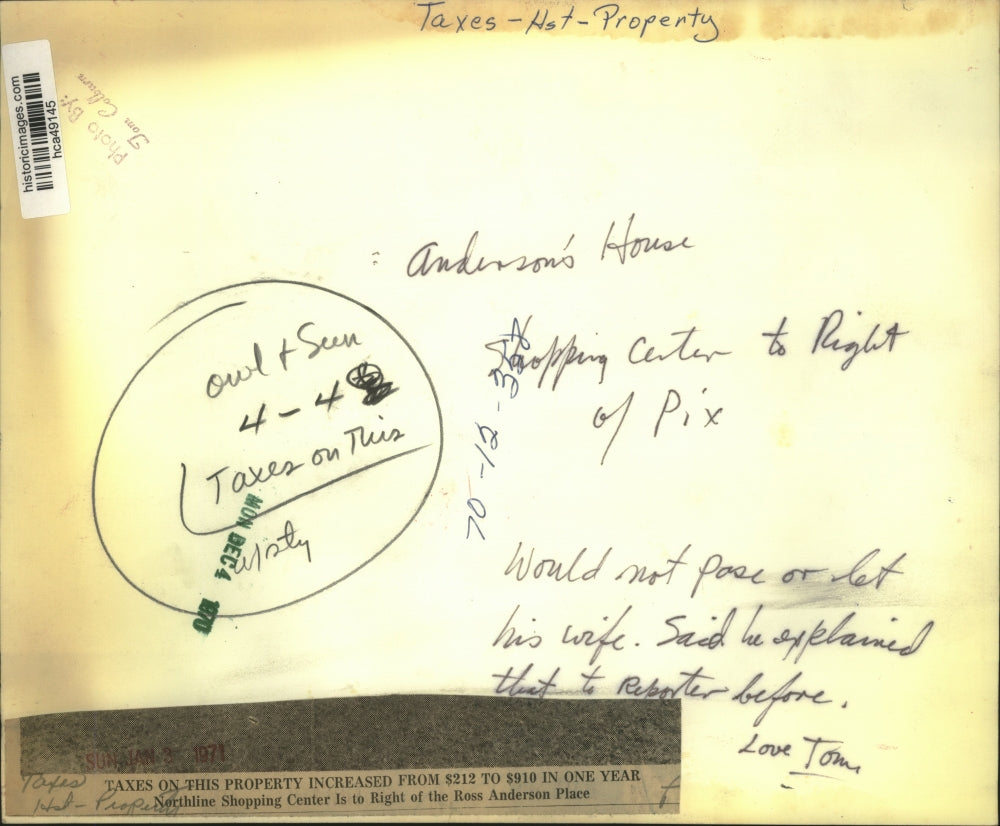 Taxes - Hst - Property
historicimages.com
hca49145
Photo By:
Tom Colburn
Anderson's House
Shopping Center to Right
of Pix
70-12-
owl + Sun
4-4
Taxes on This
MON DEC 4 1970
Would not pose or let
his wife. Said he explained
that to Reporter before.
Love Tom
SUN JAN 3 1971
Taxes
Hst - Property
TAXES ON THIS PROPERTY INCREASED FROM $212 TO $910 IN ONE YEAR
Northline Shopping Center Is to Right of the Ross Anderson Place